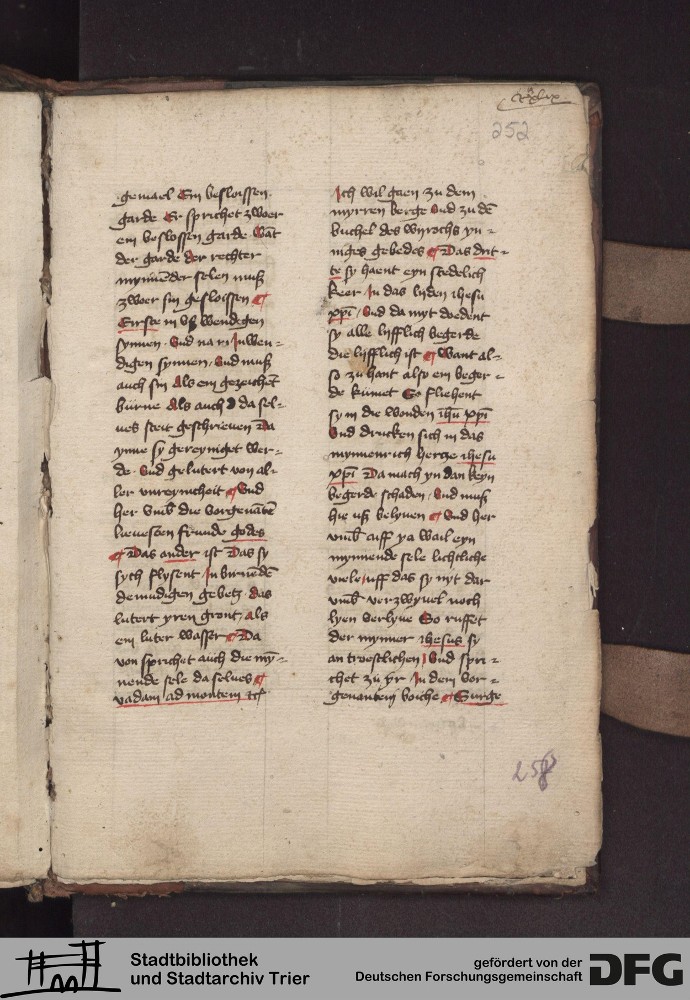 252
gemael Ein besloissen
garde Er sprichet zwoer
ein beslossen garde Wāt
der garde der rechter
mynnēder selen muß
zwoer sin gesloissen ¶
Eirste in vß wendegen
synnen. Vnd na in Inwen-
digen synnen. Vnd muß
auch sin Als ein gezeichēt
bürne Als auch da sel-
ues steit geschrieuen Da
ynne sy gereyniget wer-
de. Vnd gelutert von al-
ler vnreynicheit ¶ Vnd
her vmb die vorgenātē
lieuesten frunde godes
¶ Das ander ist Das sy
sych flysent In burnēdē
demudigen gebetz das
lutert yren gront. Als
ein luter wasser ¶ Da
von sprichet auch die my-
nende sele da selues ¶
vadam ad montem
Ich wil gaen zu dem
myrren berge Vnd zu dē
buchel des wyrochs yn-
niges gebedes ¶ Das drit-
te sy haent eyn stedelich
keer In das lyden ihesu
xpi. Vnd da myt doedent
sy alle lyfflich begerde
die lyfflich ist ¶ Want al-
so zu hant also ein beger-
de kumet So fliehent
sy in die wonden ihu xpi
Vnd drucken sich in das
mynnenrich hertze ihesu
xpi Da mach yn dan keyn
begerde schaden. Vnd muß
hie uß belyuen ¶ Vnd her
vmb auff ya wail eyn
mynnende sele lichtliche
viele uff das sy nyt dar
vmb verzwyuel noch
lyen verlyue So ruffet
der mynner ihesus sy
an troestlichen Vnd spri-
chet zu yr In dem vor-
genantem boiche ¶ Surge
258
Stadtbibliothek
und Stadtarchiv Trier
gefördert von der
Deutschen Forschungsgemeinschaft
DFG